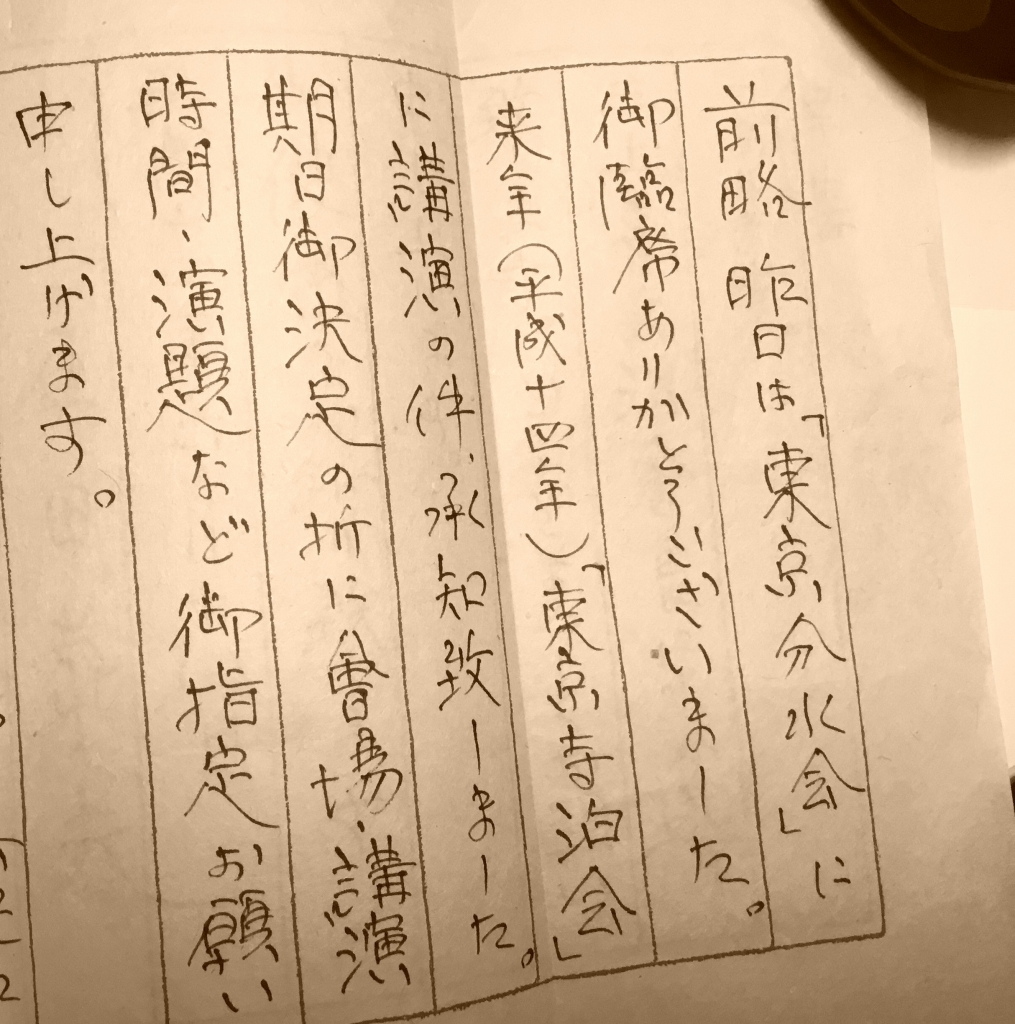 前略 昨日は「東京分水会」に
御臨席ありがとうございました。
来年(平成十四年)「東京寺泊会」
に講演の件、承知致しました。
期日御決定の折に會場・講演
時間・演題など御指定お願い
申し上げます。